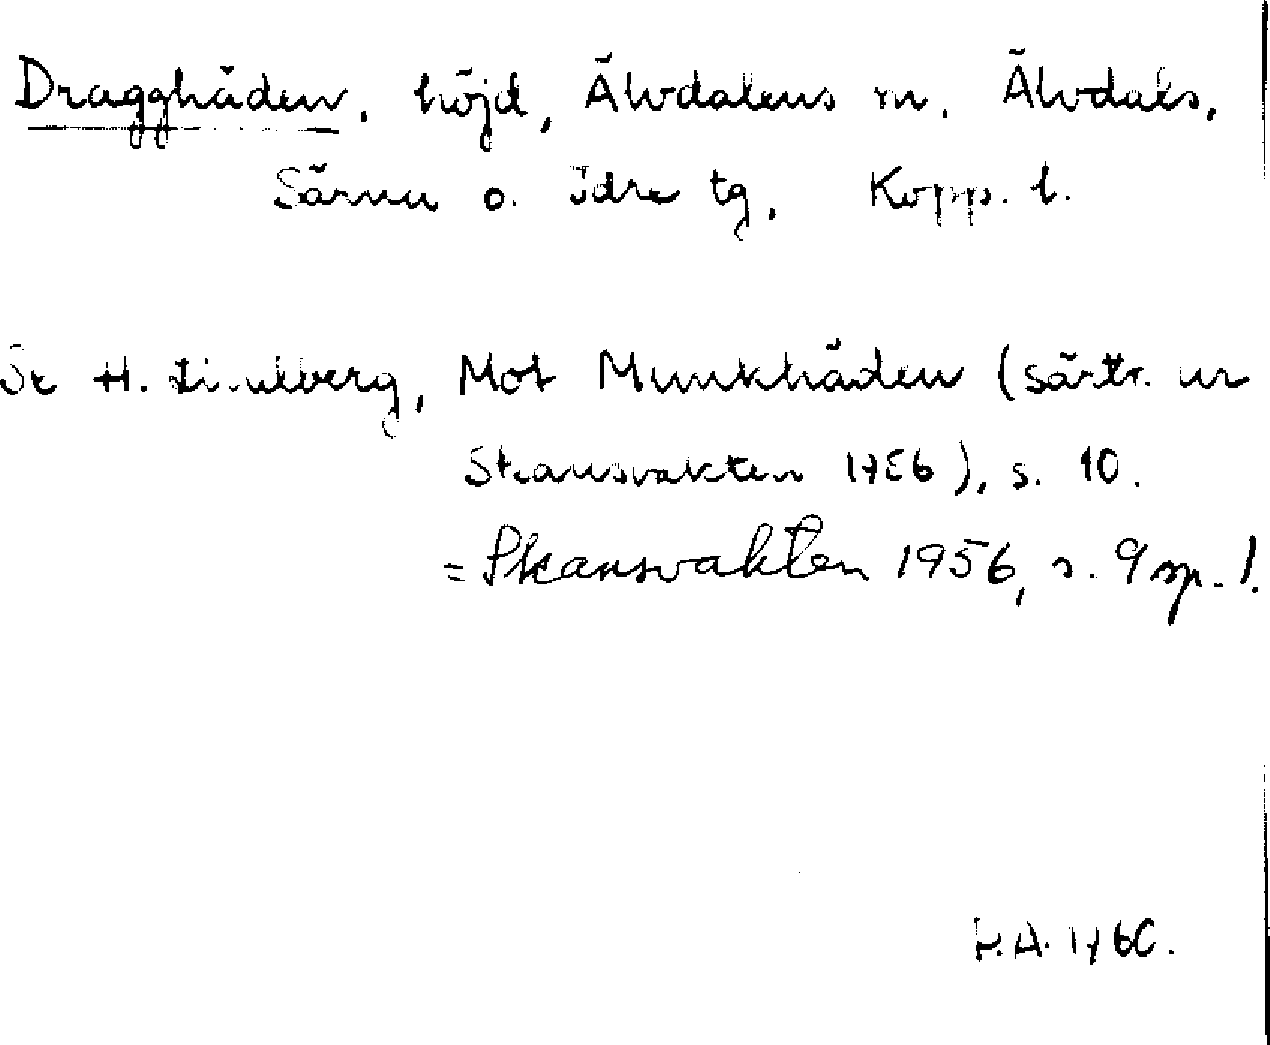 Dragghåden, höjd, Älvdalens m. Älvdals,
Särna o. Idre tg, Kopp. l.
Se H. Lindberg, Mot Munkhåden (särtr. ur
Skansvakten 1956), s. 10.
= Skansvakten 1956, s. 9 sp. 1.
H.A. 1960.